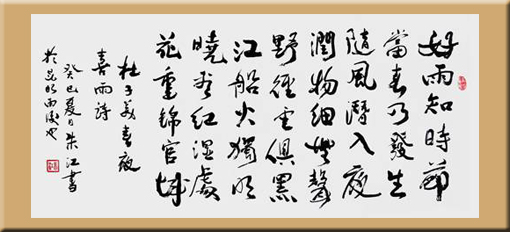 好雨知時節
當春乃發生
隨風潛入夜
潤物細無聲
野徑云俱黑
江船火獨明
曉看紅濕處
花重錦官城
杜子美春夜
喜雨詩
癸巳夏日朱江書
於昆明